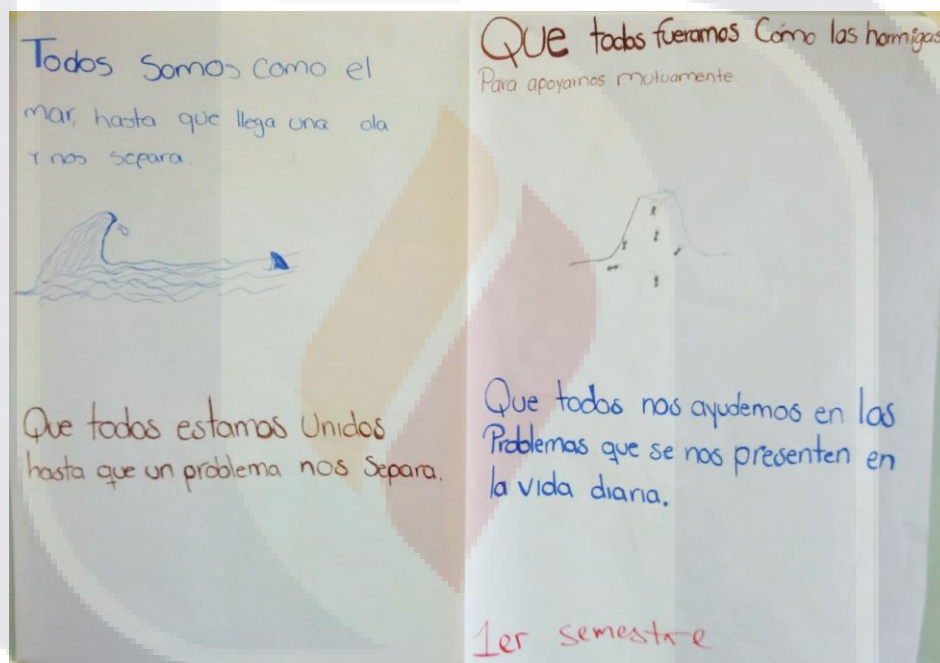 Todos Somos como el
mar, hasta que llega una ola
Y nos separa.
Que todos estamos Unidos
hasta que un problema nos Separa.
QUE todos fueramos Cómo las hormigas
Para apoyarnos mutuamente.
Que todos nos ayudemos en las
Problemas que se nos presenten en
la vida diaria.
1er semestre